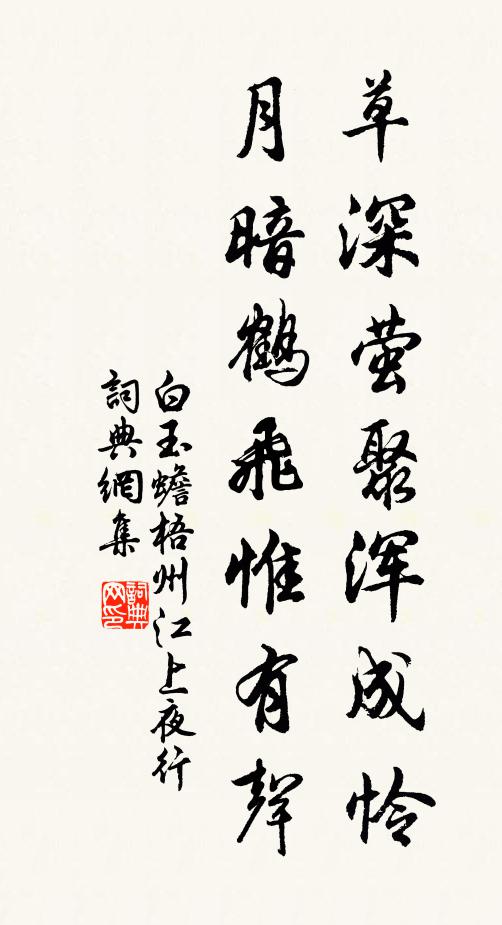 草深萤聚浑成怜
月暗鶴飛惟有聲
白玉蟾梧州江上夜行
詞典網集
詞典网印